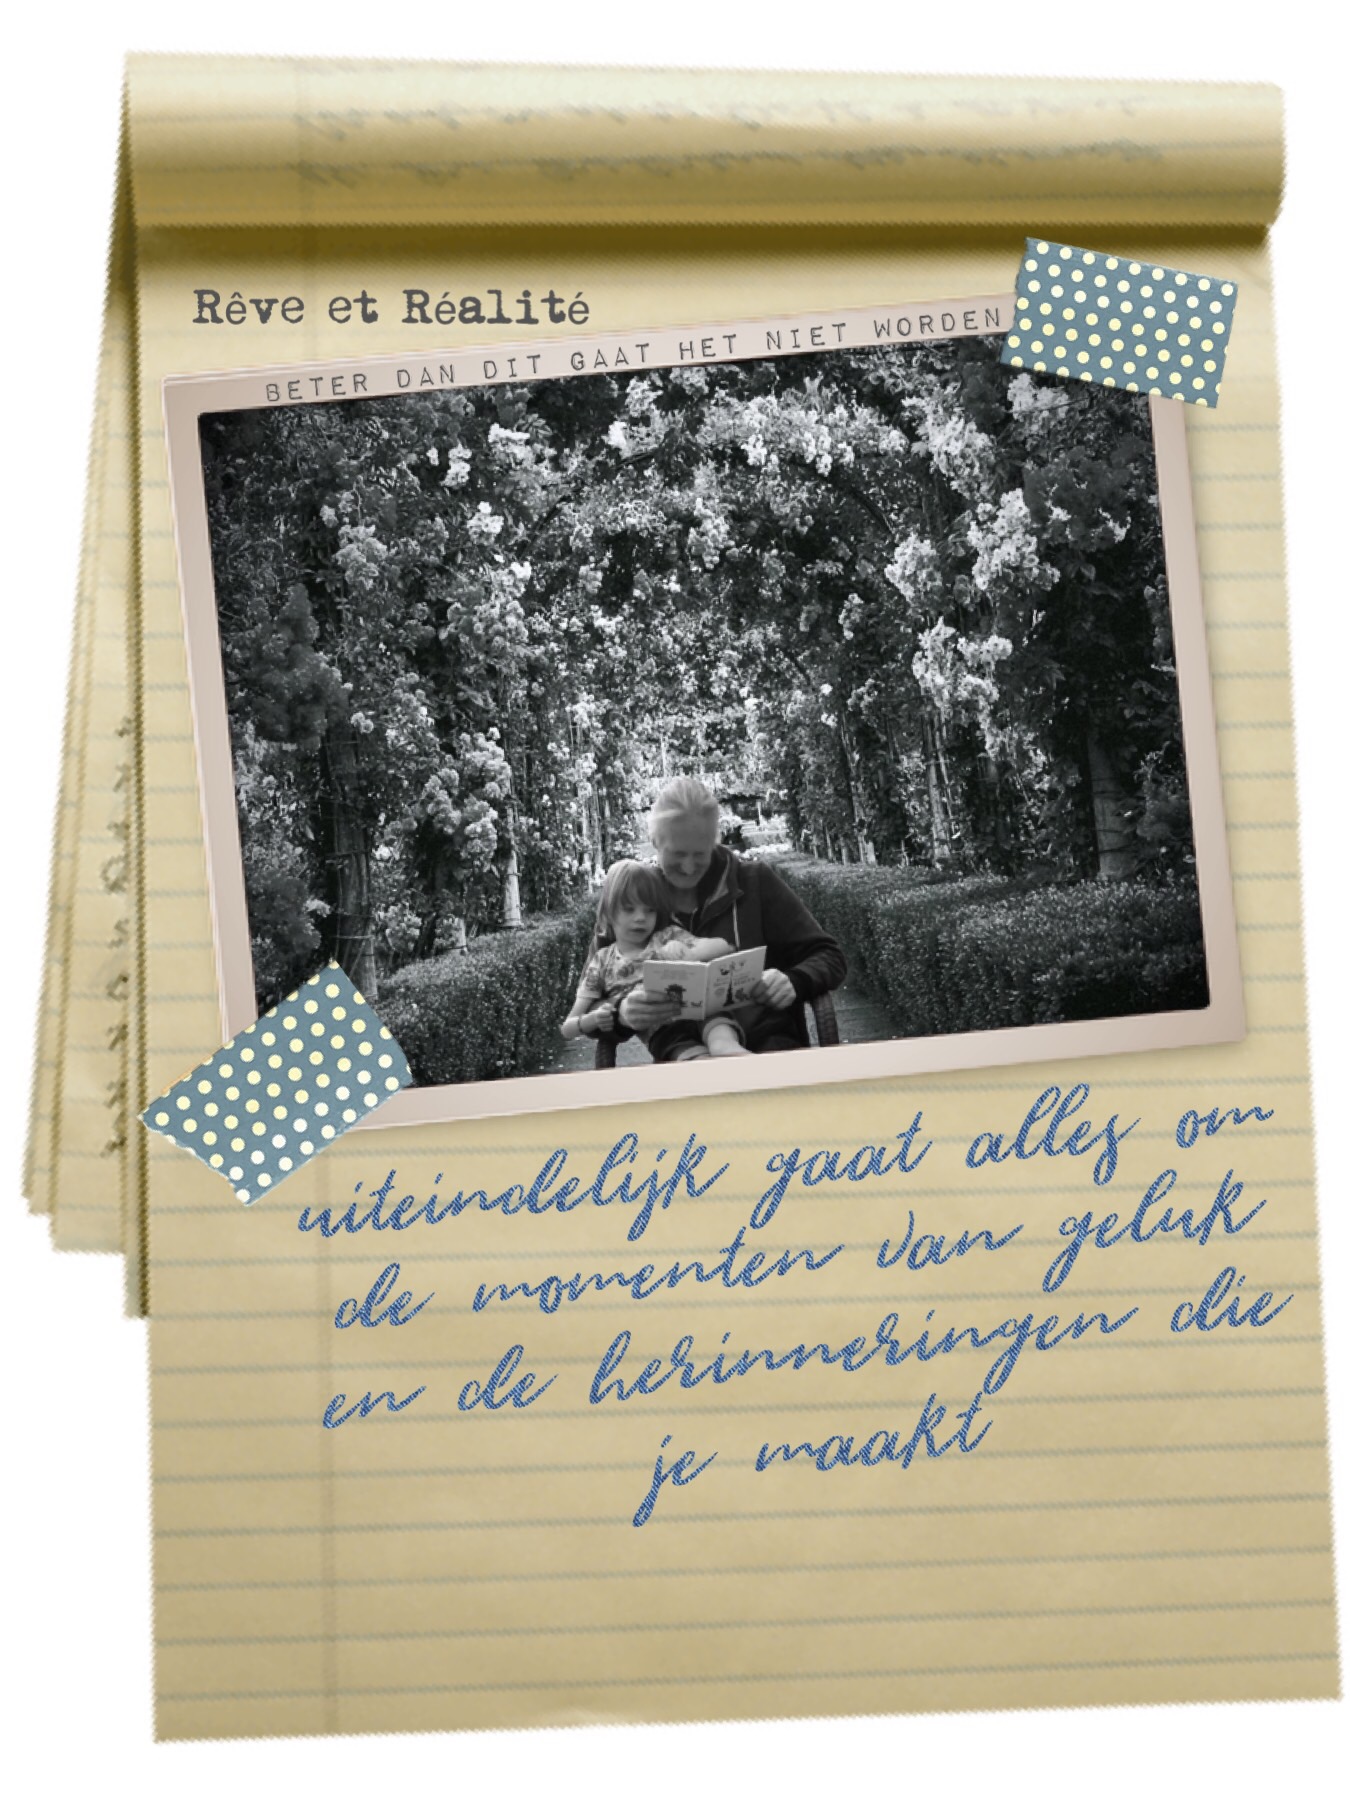 Rêve et Réalité
BETER DAN DIT GAAT HET NIET WORDEN
uiteindelijk gaat alles om
de momenten van geluk
en de herinneringen die
je maakt